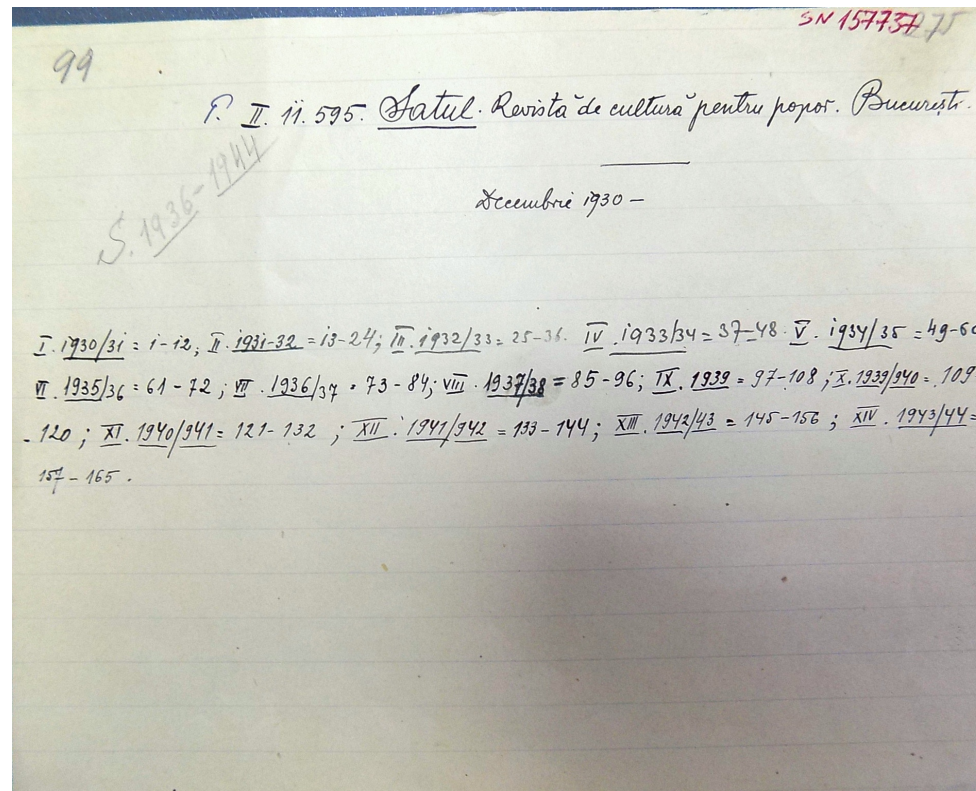 SN 157737 275
99
P. II. 11.595. Satul. Revistă de cultură pentru popor. București.
S. 1936-1944
Decembrie 1930 –
I. 1930/31 = 1-12; II. 1931-32 = 13-24; III. 1932/33 = 25-36. IV. 1933/34 = 37-48. V. 1934/35 = 49-60
VI. 1935/36 = 61-72; VII. 1936/37 = 73-84; VIII. 1937/38 = 85-96; IX. 1939 = 97-108; X. 1939/940 = 109
-120; XI. 1940/941 = 121-132; XII. 1941/942 = 133-144; XIII. 1942/43 = 145-156; XIV. 1943/44 =
157-165.